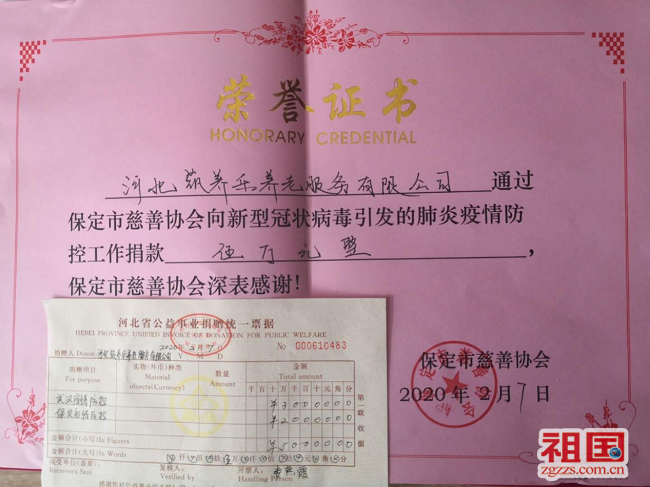 荣誉证书
HONORARY CREDENTIAL
河北筑养乐养老服务有限公司 通过
保定市慈善协会向新型冠状病毒引发的肺炎疫情防
控工作捐款 伍万元整 ，
保定市慈善协会深表感谢!
保定市慈善协会
2020年2月7日
河北省公益事业捐赠统一票据
HEBEI PROVINCE UNIFIED INVOICE OF DONATION FOR PUBLIC WELFARE
2020年2月7日
Y M D
№ 000610483
捐赠人 Donor:
捐赠项目 实物(外币)种类 数量 金额
For purpose Material objects(Currency) Amount Total amount
千百十万千百十元角分
武汉疫情防控 ¥3000000
保定疫情防控 ¥2000000
金额合计(小写) In Figures ¥5000000
金额合计(大写) In Words
第一联 收据
接受单位(盖章): 复核人: 开票人:
Receivers Seal Verified by Handling Person
感谢您对公益事业的支持!
祖国
zgzzs.com.cn